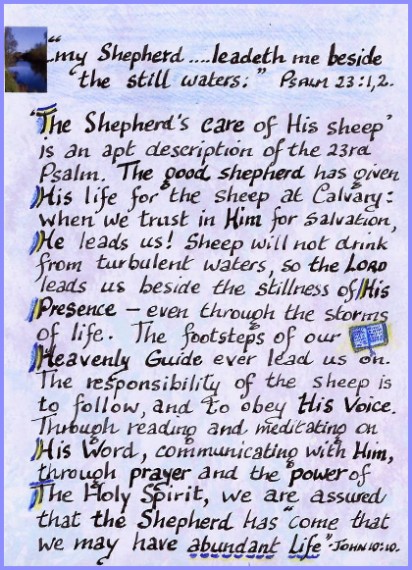 "my Shepherd ....leadeth me beside
the still waters:" Psalm 23:1,2.
'The Shepherd's care of His sheep'
is an apt description of the 23rd
Psalm. The good shepherd has given
His life for the sheep at Calvary:
when we trust in Him for salvation,
He leads us! Sheep will not drink
from turbulent waters, so the LORD
leads us beside the stillness of His
Presence — even through the storms
of life. The footsteps of our
Heavenly Guide ever lead us on.
The responsibility of the sheep is
to follow, and to obey His Voice.
Through reading and meditating on
His Word, communicating with Him,
through prayer and the power of
The Holy Spirit, we are assured
that the Shepherd has "come that
we may have abundant Life" - JOHN 10:10.